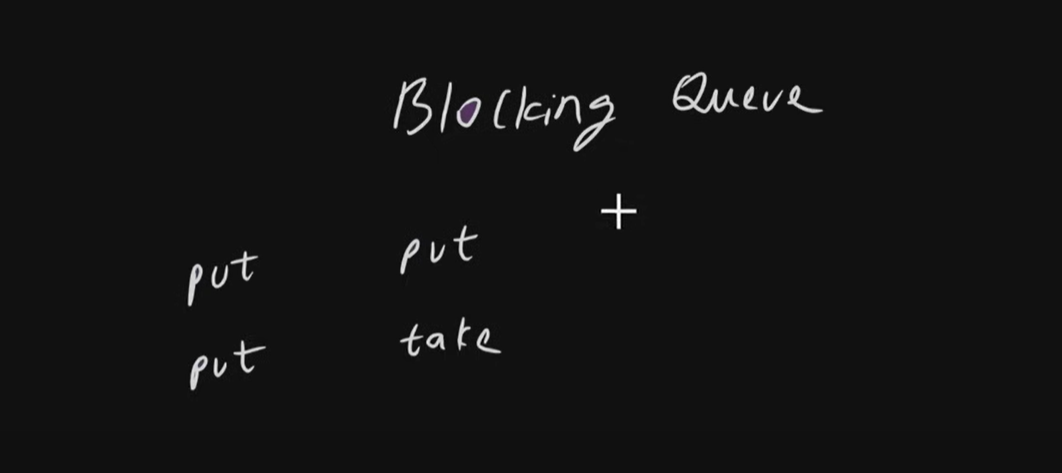 Blocking Queue
put put
put take